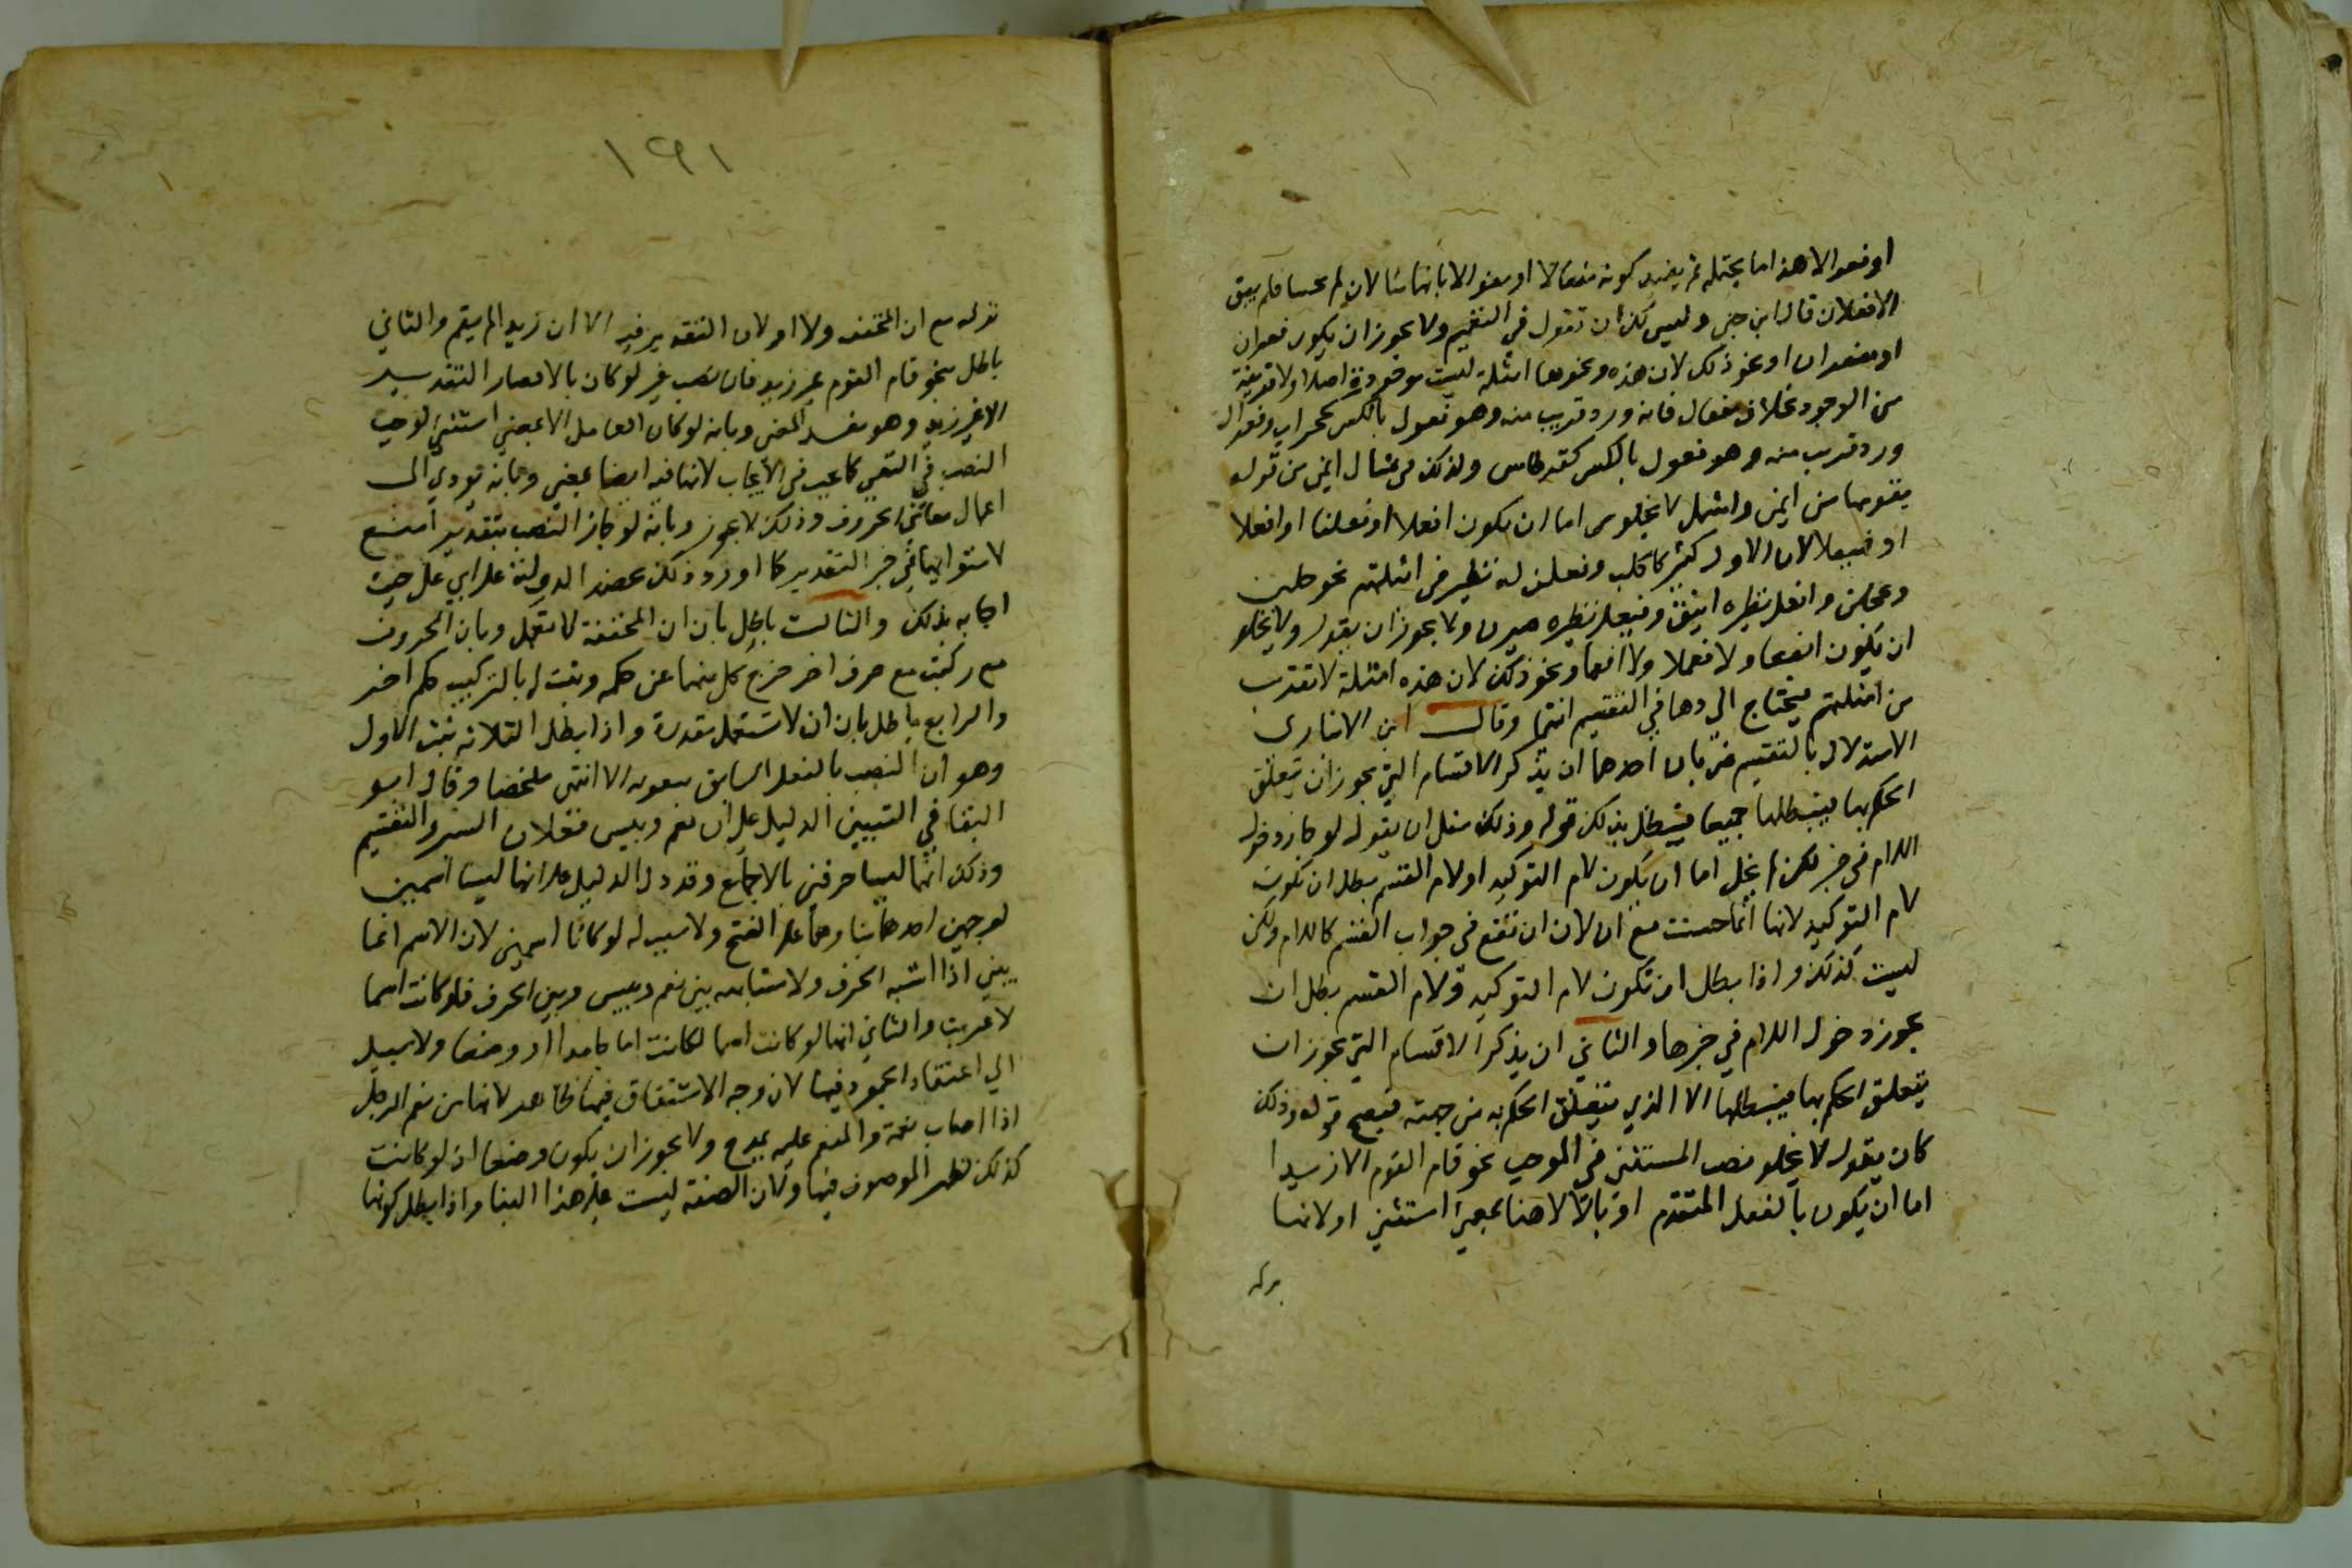 او فعوالا هذا ما يحتمله ثم يفسد كونه مفعالا او فعوالا بانهما مثالان لم يجيئا فلم يبق
الا فعلان قال ابن جني وليس لك ان تقول في التقسيم ولا يجوز ان يكون فعوان
او مفعوان او نحو ذلك لان هذه ونحوها امثلة ليست موجودة اصلا ولا قريبة
من الوجود بخلاف مفعال فانه ورد قريب منه وهو مفعول بالكسر كمحراب وفعوال
ورد قريب منه وهو فعول بالكسر كقرطاس وكذلك في مثال ايمن من قوله
يقومها من ايمن واشمل لا يخلو من اما ان يكون افعلا او فعلنا او افعلا
او فيعلا لان الاول كثير كاكلب وفعلن له نظير في امثلتهم نحو خلبن
وعلجن وافعل نظيره اينق وفيعل نظيره صيرف ولا يجوز ان يقول ولا يخلو
ان يكون ايفعا ولا فعملا ولا افعما ونحو ذلك لان هذه امثلة لا تقرب
من امثلتهم فيحتاج الي ذكرها في التقسيم انتهى وقال ابن الانباري
الاستدلال بالتقسيم ضربان احدهما ان يذكر الاقسام التي يجوز ان يتعلق
الحكم بها فيبطلها جميعا فيبطل بذلك قوله وذلك مثل ان يقول لو جاز دخول
اللام في خبر لكن لم يخل اما ان يكون لام التوكيد او لام القسم بطل ان تكون
لام التوكيد لانها انما حسنت مع ان لان ان تقع في جواب القسم كاللام ولكن
ليست كذلك واذا بطل ان تكون لام التوكيد ولام القسم بطل ان
يجوز دخول اللام في خبرها والثاني ان يذكر الاقسام التي يجوز ان
يتعلق الحكم بها فيبطلها الا الذي يتعلق الحكم به من جهته فيصح قوله وذلك
كان يقول لا يخلو نصب المستثنى في الموجب نحو قام القوم الا زيدا
اما ان يكون بالفعل المتقدم او بالا لانها بمعني استثني او لانها
مركبة
١٩١
نزله مع ان المخففه ولا او لان التقدير فيه الا ان زيدا لم يقم والثاني
باطل بنحو قام القوم غير زيد فان نصب غير لو كان بالا لصار التقدير
الا غير زيد وهو يفسد المعنى وبانه لو كان العامل الا بمعني استثني لوجب
النصب في النفي كما يجب في الايجاب لانها فيه ايضا بمعني وبانه يودي الى
اعمال معاني الحروف وذلك لا يجوز وبانه لو جاز النصب بتقدير امتنع
لاستوايهما في حسن التقدير كما اورد ذلك عضد الدولة علي ابي علي حيث
اجابه بذلك والثالث باطل بان ان المخففة لا تعمل وبان الحروف
متى ركبت مع حرف اخر خرج كل منهما عن حكمه وثبت له بالتركيب حكم اخر
والرابع باطل بان ان لا تستعمل مقدرة واذا بطل الثلاثه ثبت الاول
وهو ان النصب بالفعل السابق بتقويه الا انتهى ملخصا وقال ابو
البقا في التبيين الدليل علي ان نعم وبيس فعلان السبر والتقسيم
وذلك انهما ليسا حرفين بالاجماع وقد دل الدليل علي انهما ليسا اسمين
لوجهين احدهما بناوهما علي الفتح ولا سبب له لو كانا اسمين لان الاسم انما
يبني اذا اشبه الحرف ولا مشابهه بين نعم وبيس وبين الحرف فلو كانت اسما
لاعربت والثاني انها لو كانت اسما لكانت اما جامدا او وصفا ولا سبيل
الي اعتقاد الجمود فيها لان وجه الاشتقاق فيها ظاهر لانها من نعم الرجل
اذا اصاب نعمة والمنعم عليه يمدح ولا يجوز ان يكون وصفا اذ لو كانت
كذلك لظهر الموصوف فيها ولان الصفة ليست علي هذا البنا واذا بطل كونها